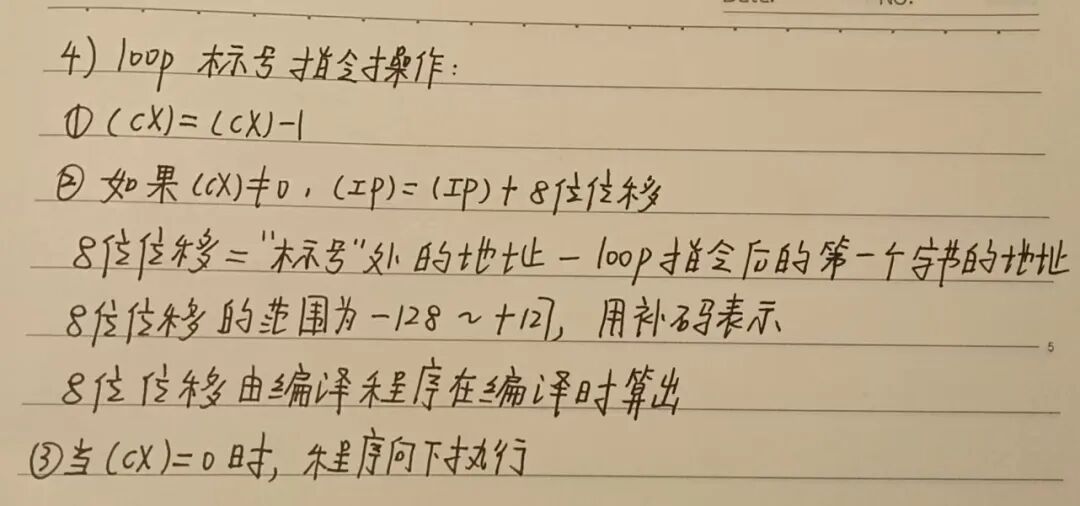 4) loop 标号指令操作:
① (CX)=(CX)-1
② 如果(CX)≠0,(IP)=(IP)+8位位移
8位位移="标号"处的地址-loop指令后的第一个字节的地址
8位位移的范围为-128~+127,用补码表示
5
8位位移由编译程序在编译时算出
③当(CX)=0时,程序向下执行